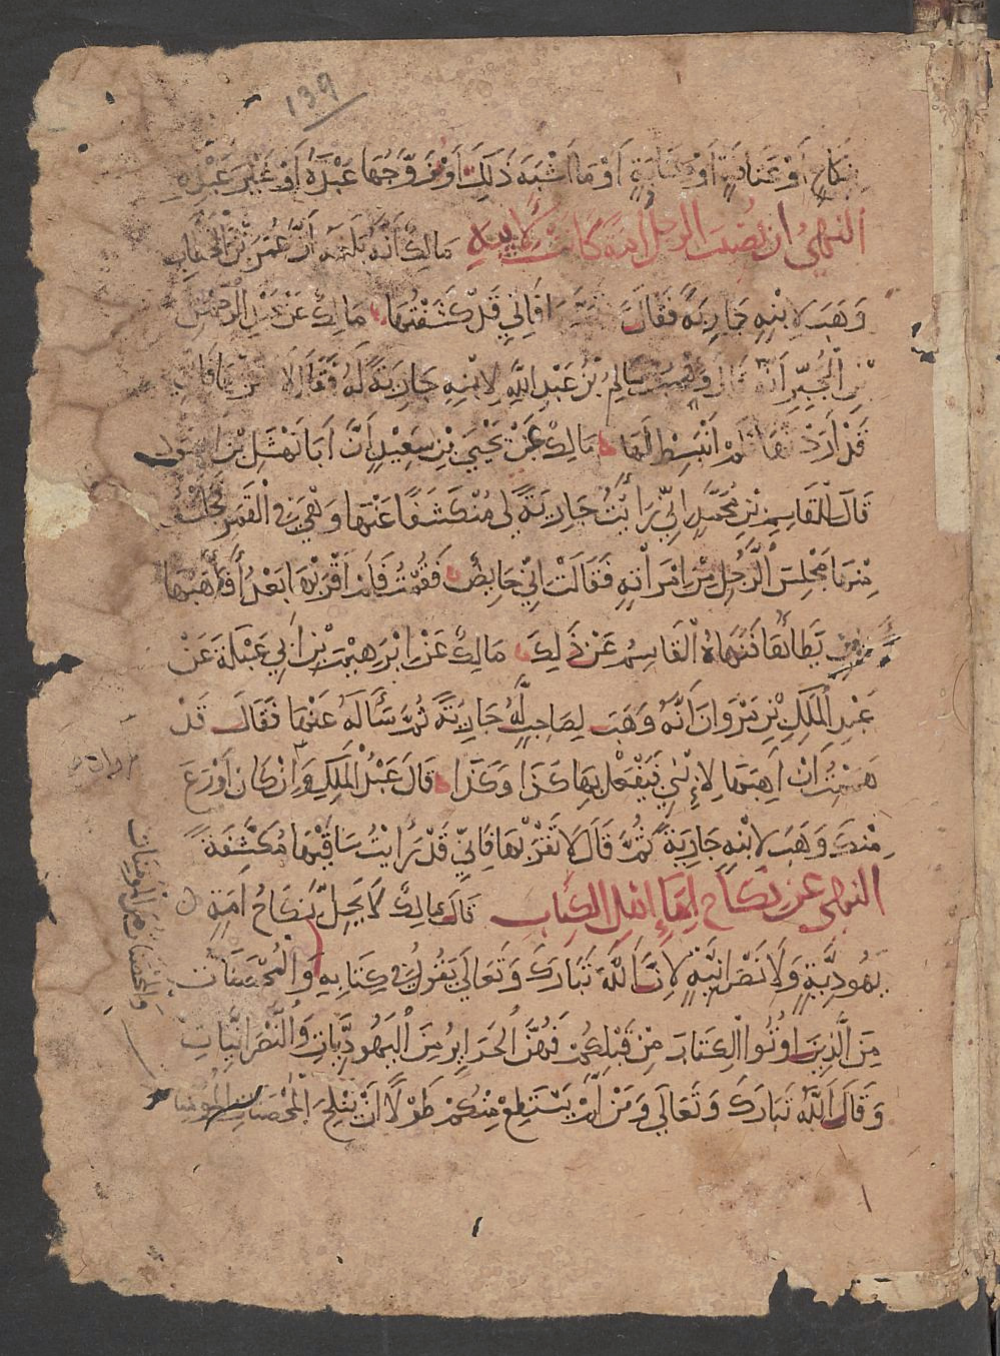 139
نِكَاحٍ أَوْ عَتَاقَةٍ أَوْ كِتَابَةٍ أَوْ مَا أَشْبَهَ ذَلِكَ أَوْ زَوَّجَهَا عَبْدَهُ أَوْ غَيْرَ عَبْدِهِ
النهي ان يصيب الرجل امة كانت لأبيه مَالِكٌ أَنَّهُ بَلَغَهُ أَنَّ عُمَرَ بْنَ الْخَطَّابِ
وَهَبَ لِابْنِهِ جَارِيَةً فَقَالَ فَإِنِّي قَدْ كَشَفْتُهَا مَالِكٌ عَنْ عَبْدِ الرَّحْمَنِ
بْنِ الْمُجَبَّرِ أَنَّهُ قَالَ وَهَبَ سَالِمُ بْنُ عَبْدِ اللَّهِ لِابْنِهِ جَارِيَةً لَهُ فَقَالَ لَا
قَدْ أَرَدْتُهَا فَلَمْ أَنْبَسِطْ إِلَيْهَا مَالِكٌ عَنْ يَحْيَى بْنِ سَعِيدٍ أَنَّ أَبَا نَهْشَلِ بْنَ
قَالَ لِلْقَاسِمِ بْنِ مُحَمَّدٍ إِنِّي رَأَيْتُ جَارِيَةً لِي مُنْكَشِفًا عَنْهَا وَهِيَ فِي الْقَمَرِ فَجَلَسْتُ
مِنْهَا مَجْلِسَ الرَّجُلِ مِنِ امْرَأَتِهِ فَقَالَتْ إِنِّي حَائِضٌ فَقُمْتُ فَلَمْ أَقْرَبْهَا بَعْدُ أَفَأَهَبُهَا
يَطَأُهَا فَنَهَاهُ الْقَاسِمُ عَنْ ذَلِكَ مَالِكٌ عَنْ إِبْرَهِيمَ بْنِ أَبِي عَبْلَةَ عَنْ
عَبْدِ الْمَلِكِ بْنِ مَرْوَانَ أَنَّهُ وَهَبَ لِصَاحِبٍ لَهُ جَارِيَةً ثُمَّ سَأَلَهُ عَنْهَا فَقَالَ قَدْ
هَمَمْتُ أَنْ أَهَبَهَا لِابْنِي فَيَفْعَلُ بِهَا كَذَا وَكَذَا قَالَ عَبْدُ الْمَلِكِ مَرْوَانُ كَانَ أَوْرَعَ
مِنْكَ وَهَبَ لِابْنِهِ جَارِيَةً ثُمَّ قَالَ لَا تَقْرَبْهَا فَإِنِّي قَدْ رَأَيْتُ سَاقَهَا مُنْكَشِفَةً
النهي عن نكاح إماء اهل الكتاب قَالَ مَالِكٌ لَا يَحِلُّ نِكَاحُ أَمَةٍ
يَهُودِيَّةٍ وَلَا نَصْرَانِيَّةٍ لِأَنَّ اللَّهَ تَبَارَكَ وَتَعَالَى يَقُولُ فِي كِتَابِهِ وَالْمُحْصَنَاتُ
مِنَ الَّذِينَ أُوتُوا الْكِتَابَ مِنْ قَبْلِكُمْ فَهُنَّ الْحَرَايِرُ مِنَ الْيَهُودِيَّاتِ وَالنَّصْرَانِيَّاتِ
وَقَالَ اللَّهُ تَبَارَكَ وَتَعَالَى وَمَنْ لَمْ يَسْتَطِعْ مِنْكُمْ طَوْلًا أَنْ يَنْكِحَ الْمُحْصَنَاتِ الْمُؤْمِنَاتِ
مروان
والمحصنات من المومنات